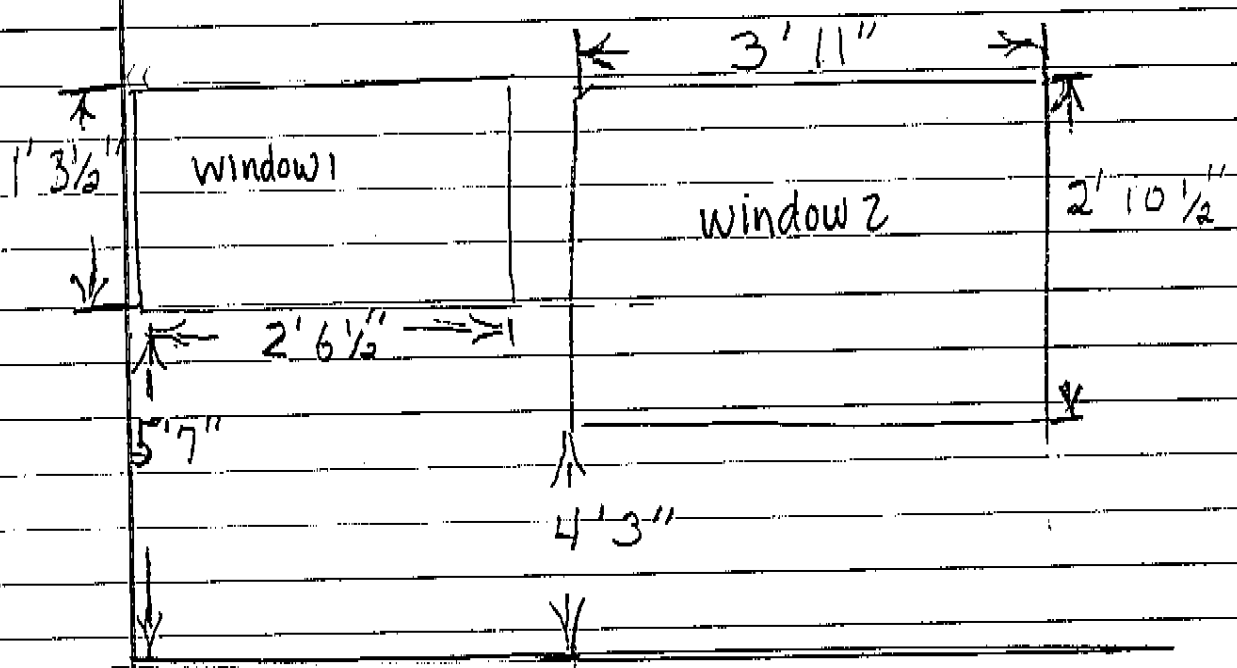 3' 11"
1' 3 1/2"
window 1
window 2
2' 10 1/2"
2' 6 1/2"
5' 7"
4' 3"